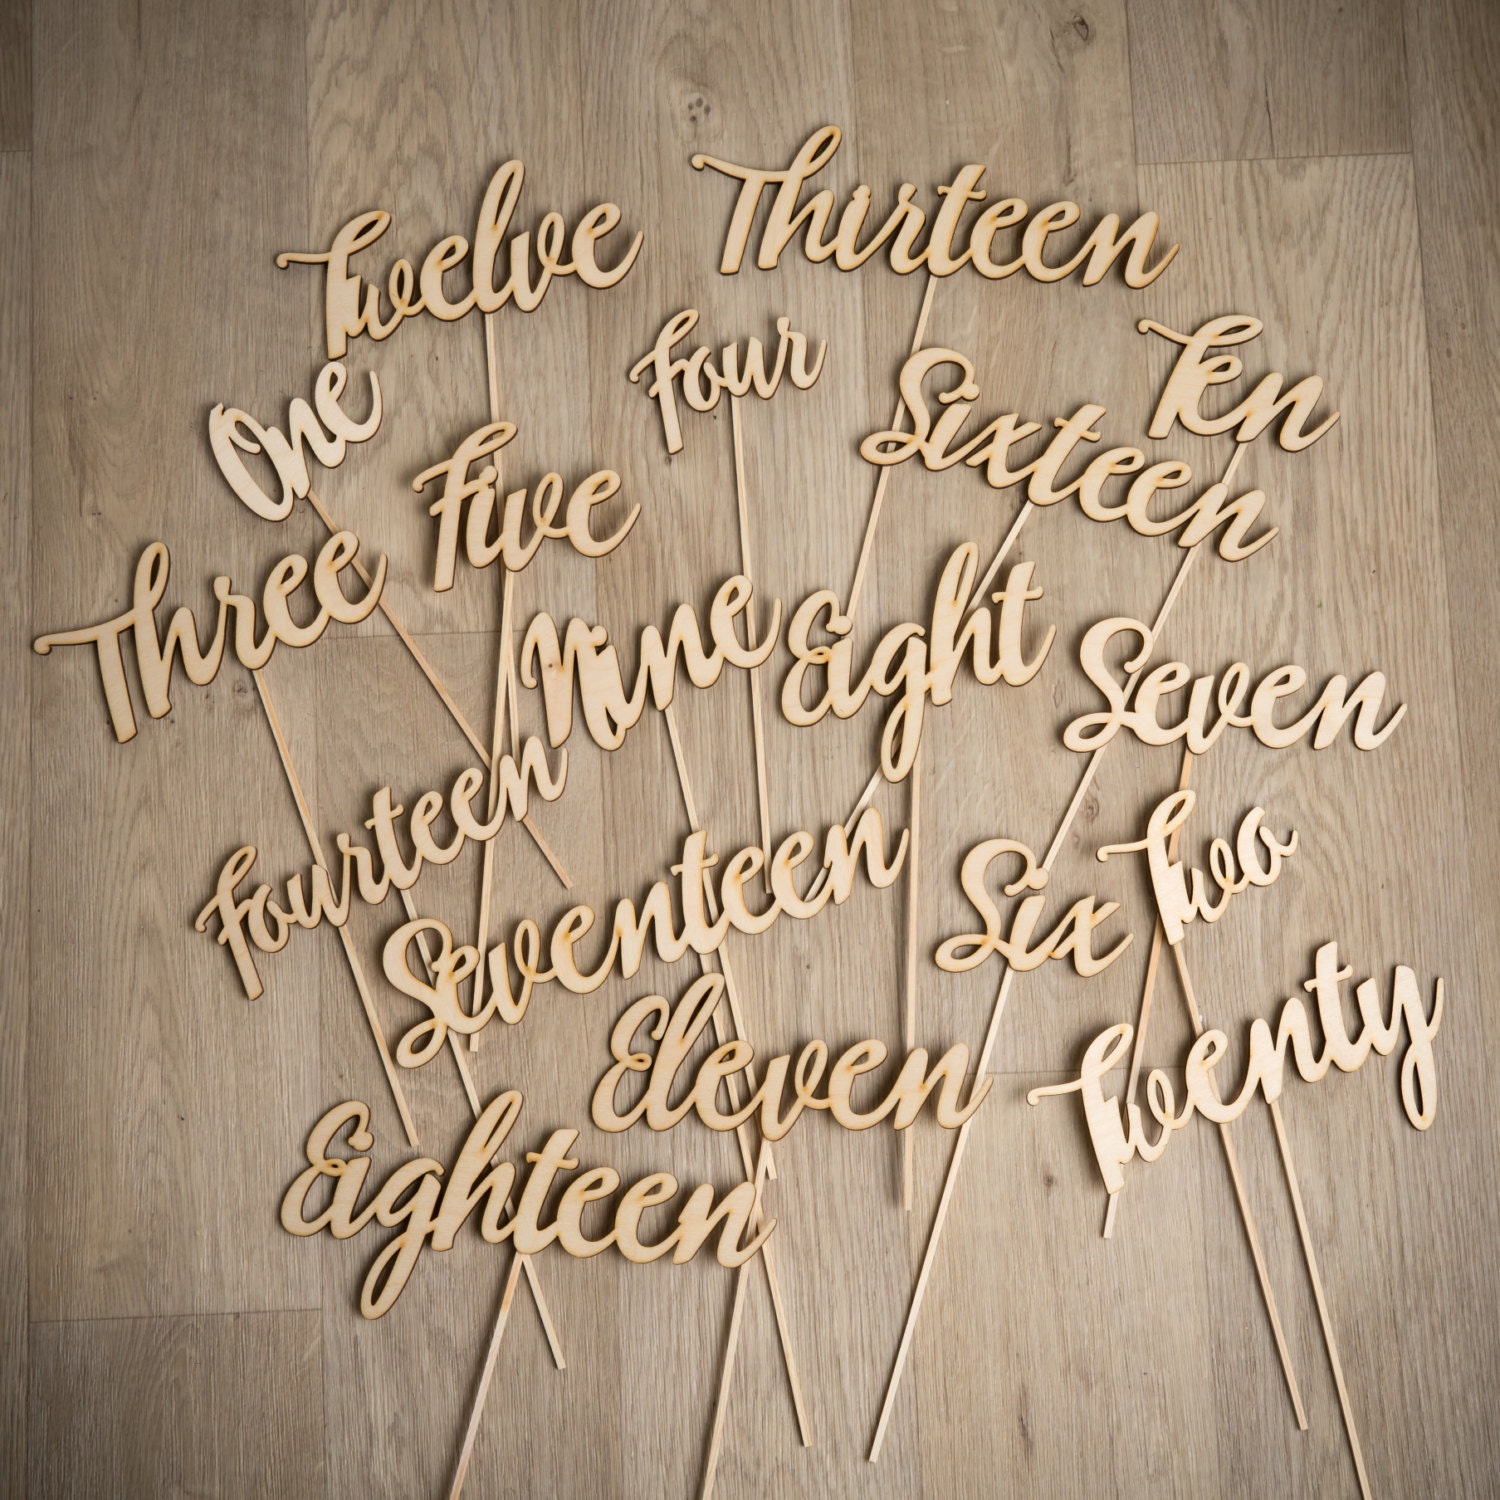 Thirteen
Twelve
Four
Ten
One
Sixteen
Five
Three
Nine
Eight
Seven
Fourteen
Two
Seventeen
Six
Twenty
Eleven
Eighteen